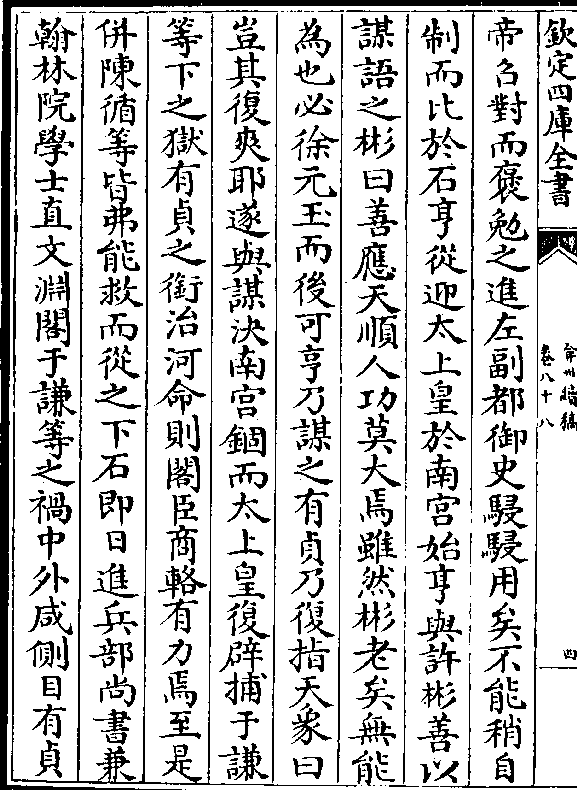 欽定四庫全書
弇州續稿
卷八十八
四
帝召對而褒勉之進左副都御史駸駸用矣不能稍自
制而比於石亨從迎太上皇於南宮始亨與許彬善以
謀語之彬曰善應天順人功莫大焉雖然彬老矣無能
為也必徐元玉而後可亨乃謀之有貞乃復指天象曰
豈其復爽耶遂與謀決南宮錮而太上皇復辟捕于謙
等下之獄有貞之銜治河命則閣臣商輅有力焉至是
併陳循等皆弗能救而從之下石即日進兵部尚書兼
翰林院學士直文淵閣于謙等之禍中外咸側目有貞